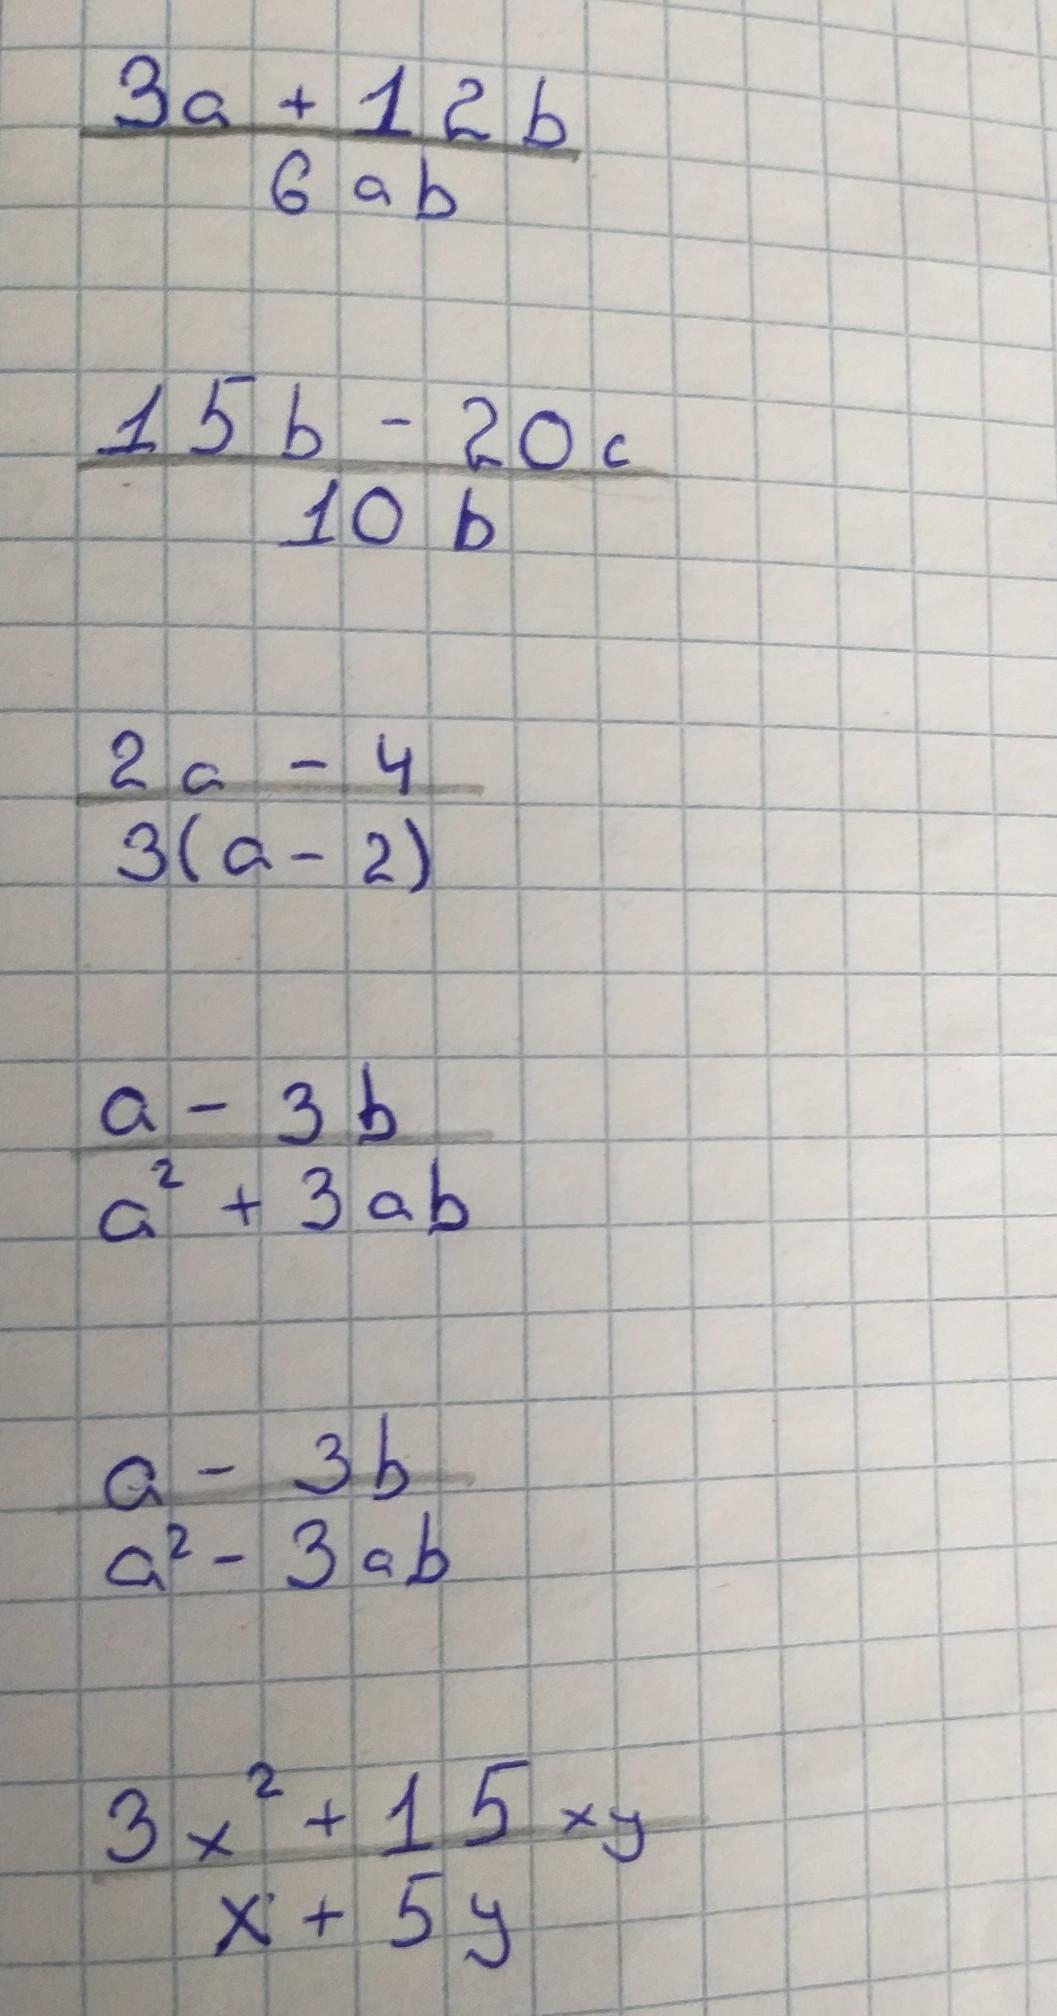 3a + 12b
6ab
15b - 20c
10b
2a - 4
3(a - 2)
a - 3b
a² + 3ab
a - 3b
a² - 3ab
3x² + 15xy
x + 5y